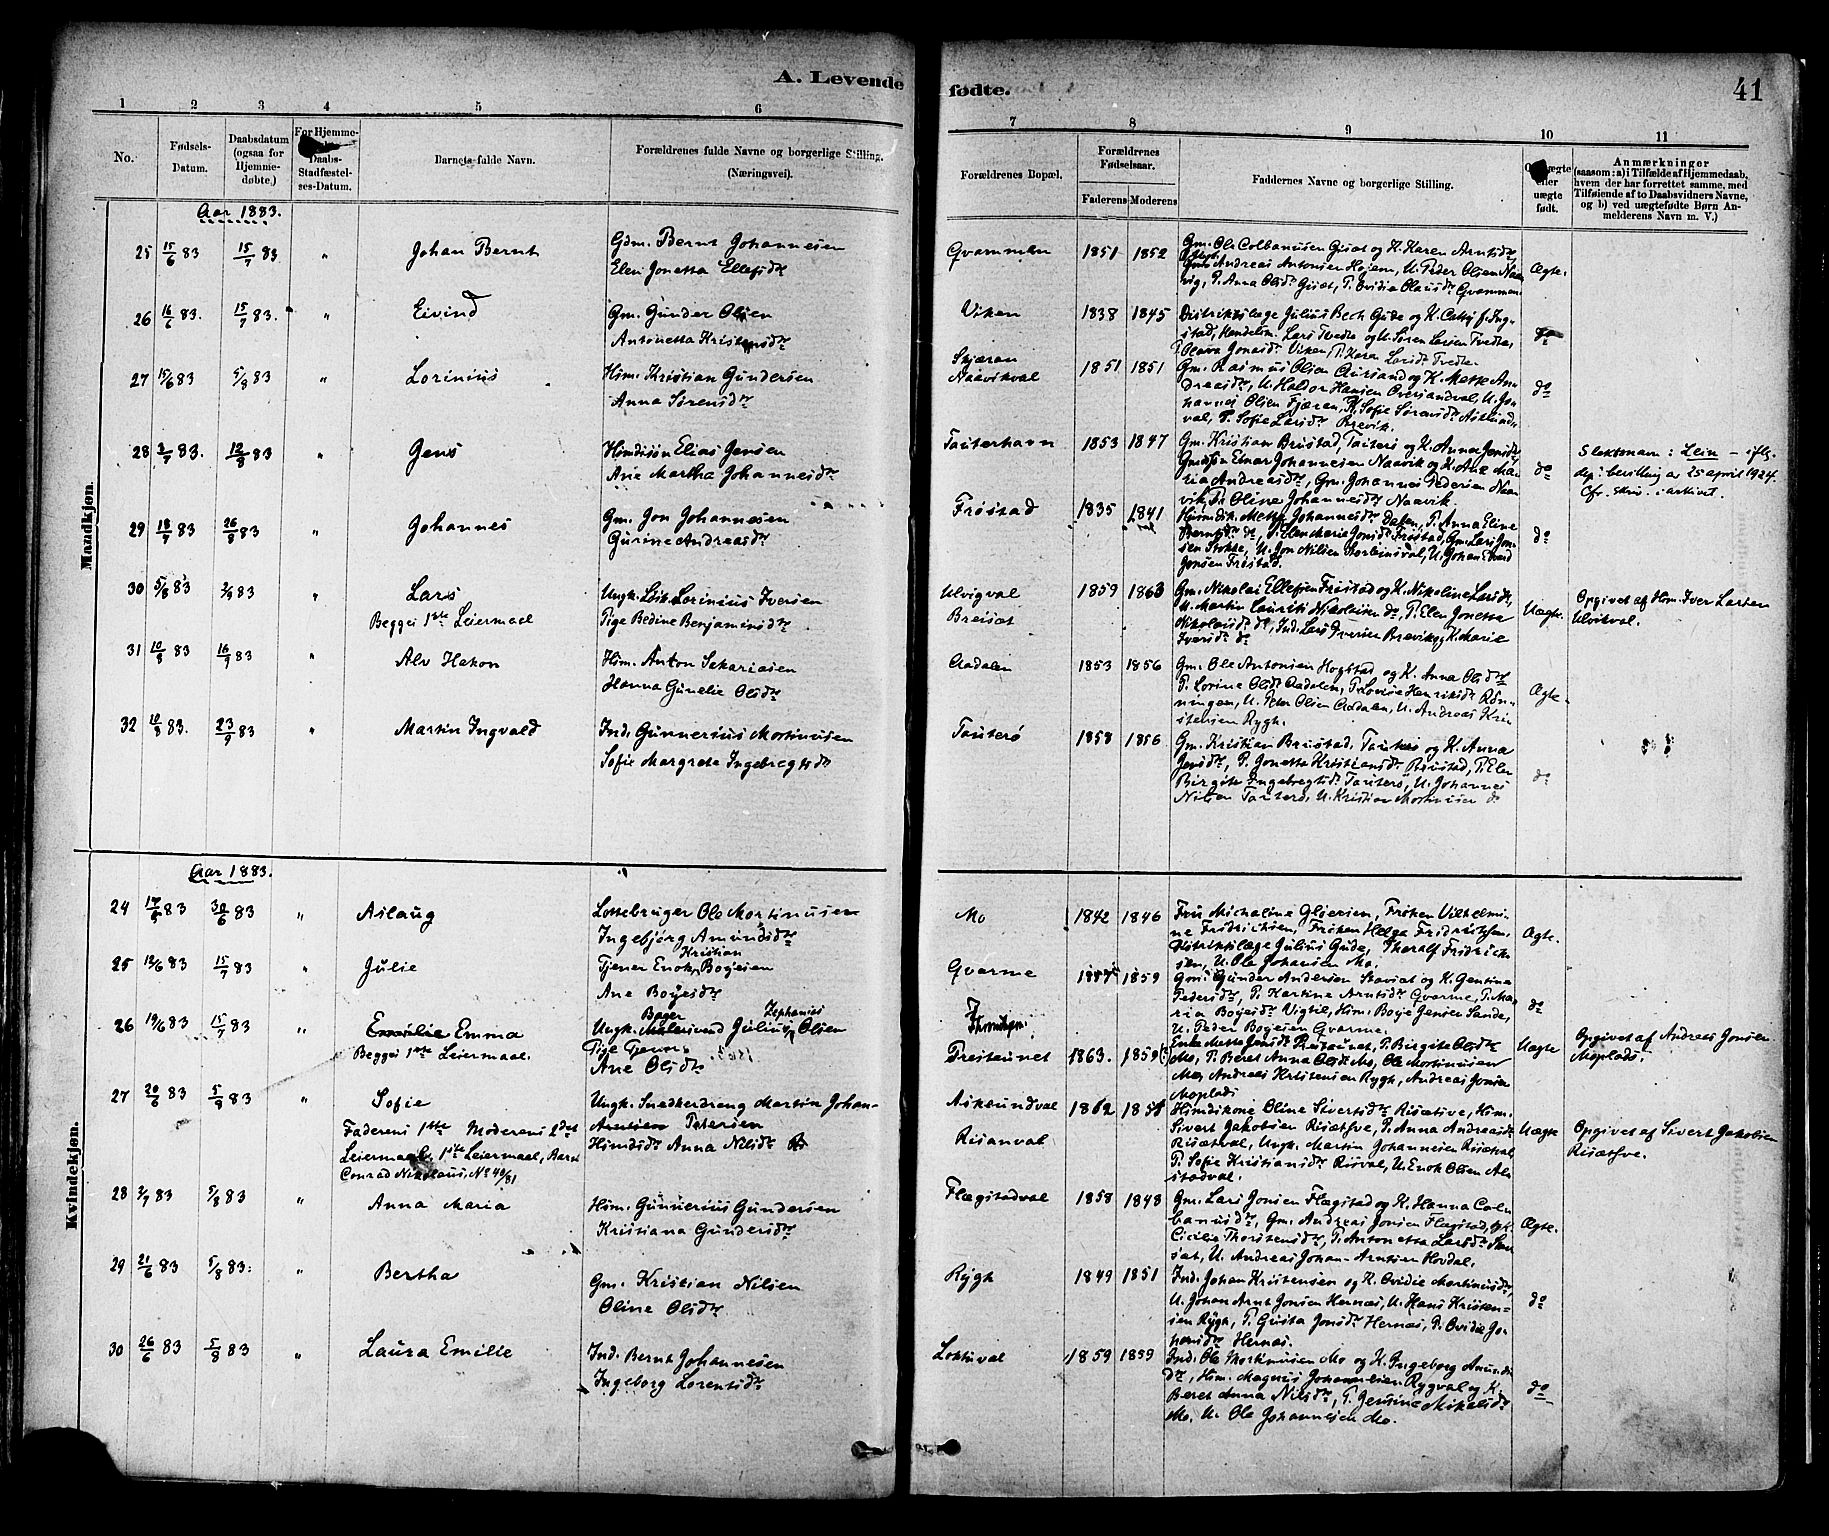 A. Levende fødte. 41
1 2 3 4 5 6 7 8 9 10 11
No. Fødsels-Datum. Daabsdatum (ogsaa for Hjemmedøbte.) For Hjemme- Daabs-Stadfæstelses-Datum. Barnets fulde Navn. Forældrenes fulde Navne og borgerlige Stilling. (Næringsvei).
Forældrenes Bopæl. Forældrenes Fødselsaar. Faderens Moderens Faddernes Navne og borgerlige Stilling. eller uægte født. Anmærkninger (saasom: a) i Tilfælde af Hjemmedaab, hvem der har forrettet samme, med Tilføiende af to Daabsvidners Navne, og b) ved uægtefødte Børn Anmelderens Navn m. V.)
Mandkjøn.
Aar 1883.
25 15/6 83 15/7 83 " Johan Bernt Gdm. Bernt Johannesen
Elen Jonetta Ellefsdr
Gvammen 1851 1852 Gm. Ole Colbanusen Gusat og K. Karen Arntsdr
Gm. Andreas Antonsen Hojem, U. Peder Olsen Naa-
vig, P. Anna Olsdr Gusat, P. Ovidia Olausdr Gvammen. Ægte.
26 16/6 83. 15/7 83. " Eivind Gm. Gunder Olsen
Antonetta Kristensdr
Viken 1838 1845 Distriktslæge Julius Bech Gude og K. Cathy f. Ing-
stad, Handelsm. Lars Tvedte og U. Søren Larsen Tvedte,
P. Olava Jonasdr Viken, P. Karen Larsdr Tvedte do
27 15/6 83 5/8 83 " Lorinius Hsm. Kristian Gundersen
Anna Sørensdr
Skjæran
Naavikval 1851 1851 Gm. Rasmus Olsen Aursand og K. Mette An-
dreasdr, U. Haldor Hansen Oversandval, U. Jo-
hannes Olsen Fjæran, P. Sofie Sørensdr Aslund-
val, P. Sofie Larsdr Brevik. do
28 2/7 83. 12/8 83 " Jens Husmdsøn Elias Jensen
Ane Martha Johannesdr
Tauterhavn 1853 1847 Gm. Kristian Brustad, Tauterø og K. Anna Jensdr
Gmdsøn Einar Johannesen Naavik og K. Ane Ma-
ria Andreasdr, Gm. Johannes Pedersen Naa-
vik, P. Oline Johannesdr Naavik. do
Slektsnavn: Lein – iflg.
dep. bevilling av 25 april 1924.
Cfr. skriv. i arkivet.
29 18/7 83 26/8 83 " Johannes Gm. Jon Johannesen
Gurine Andreasdr
Frøstad 1835 1841 Husmdsk. Mette Johannesdr Dalen, P. Anna Eline
Berntsdr do, P. Elen Marie Jonsdr Frøstad, Gm. Lars Jon-
sen Stokke, U. Jon Nilsen Thorleinsval, U. Johan Evend
Jonsen Frøstad. do
30 5/8 83 2/9 83 " Lars
Begges 1ste Leiermaal Ungk. Løsk. Lorinius Iversen
Pige Bedine Benjaminsdr
Ulvigval
Breisat 1859 1863 Gm. Nikolai Ellefsen Frøstad og K. Nikoline Larsdr,
U. Martin Laurits Nikolaisen do, P. Elen Jonetta
Nikolaisdr do, Ind. Lars Iversen Brevik og K. Marie
Iversdr do Uægte. Opgivet af Hsm. Iver Larsen
Ulvikval.
31 10/8 83 16/9 83 " Alv Hakon Hsm. Anton Sekariasen
Hanna Gunelie Olsdr
Aadalen 1853 1856 Gm. Ole Antonsen Hogstad og K. Anna Olsdr
P. Lorine Olsdr Aadalen, P. Lovise Henriksdr Røn-
ningen, U. Peter Olsen Aadalen, U. Andreas Kri-
stensen Rygh. Ægte.
32 10/8 83. 23/9 83 " Martin Ingvald Ind. Gunnerius Mortinusen
Sofie Margrete Ingebregtsdr
Tauterø 1858 1856 Gm. Kristian Brustad, Tauterø og K. Anna
Jensdr, P. Jonetta Kristiansdr Brustad, P. Elen
Birgitte Ingebregtsdr Tauterø, U. Johannes
Nilsen Tauterø, U. Kristian Mortinusen do do
Kvindekjøn.
Aar 1883.
24 17/5 83 30/6 83 " Aslaug Lottebruger Ole Mortinusen
Ingebjørg Amundsdr
Mo 1842 1846 Fru Michaline Gløersen, Frøken Vilhelmi-
ne Fridrichsen, Frøken Helga Fridrichsen,
Distriktslæge Julius Gude, Thoralf Fridrich-
sen, U. Ole Johansen Mo. Ægte.
25 12/6 83 15/7 83 " Julie Tjener Enok Kristian Boyesen
Ane Boyesdr
Gvarme 1859 Gm. Gunder Andersen Stavsat og K. Gentine
Pedersdr, P. Martine Arntsdr Gvarme, P. Ma-
ria Boyesdr Vigtil, Hsm. Boye Jensen Sande,
U. Peder Boyesen Gvarme. do
26 19/6 83 15/7 83 " Emilie Emma
Begges 1ste Leiermaal. Ungk. Bager Julius Zephanias Olsen
Pige Tjener
Ane Olsdr
Trondhjem.
Preitaunet 1863. 1859 Enke Mette Jonsdr Preitaunet, P. Birgitte Olsdr
Mo, P. Beret Anna Olsdr Mo, Ole Mortinusen
Mo, Andreas Kristensen Rygh, Andreas Jonsen
Moplads Uægte Opgivet af Andreas Jonsen
Moplads.
27 20/6 83 5/9 83 " Sofie
Faderens 1ste Moderens 2det
Leiermaal. 1ste Leiermaal, Barn
Conrad Nikolaus, No 40/81 Ungk. Snedkerdreng Martin Johan-
Arntsen Petersen
Husmdsdr Anna Nilsdr
Aiksundval
Risanval 1862 1851 Husmdskone Oline Sivertsdr Risætsve, Hsm.
Sivert Jakobsen Risætsve, P. Anna Andreasdr
Risætval, Ungk. Martin Johannesen Risætval
P. Sofie Kristiansdr Risval, U. Enok Olsen Al-
stadval. Uægte Opgivet af Sivert Jakobsen
Risætsve.
28 2/7 83 5/8 83 " Anna Maria Hsm. Gunnerius Gundersen
Kristiana Gundersdr
Flægstadval 1858 1848 Gm. Lars Jonsen Flægstad og K. Hanna Coln-
banusdr, Gm. Andreas Jonsen Flægstad, og K.
Cicilie Thorstensdr, P. Antonetta Larsdr
sat, U. Andreas Johan Arntsen Hovdal. Ægte.
29 21/6 83 5/8 83. " Bertha Gm. Kristian Nilsen
Oline Olsdr
Rygh 1849 1851 Ind. Johan Kristensen og K. Ovidie Mortinusdr,
U. Johan Arnt Jonsen Hernæs, U. Hans Kristen-
sen Rygh, P. Gusta Jonsdr Hernæs, P. Ovidie Jo-
hansdr Hernæs. do
30 26/6 83 5/8 83 " Laura Emilie Ind. Bernt Johannesen
Ingeborg Lorentsdr
Loktuval 1859 1859 Ind. Ole Mortinusen Mo og K. Ingeborg Amunds-
dr, Hsm. Magnus Johannesen Rygval og K.
Beret Anna Nilsdr, P. Jensine Mikalsdr
Mo, U. Ole Johannesen Mo. do